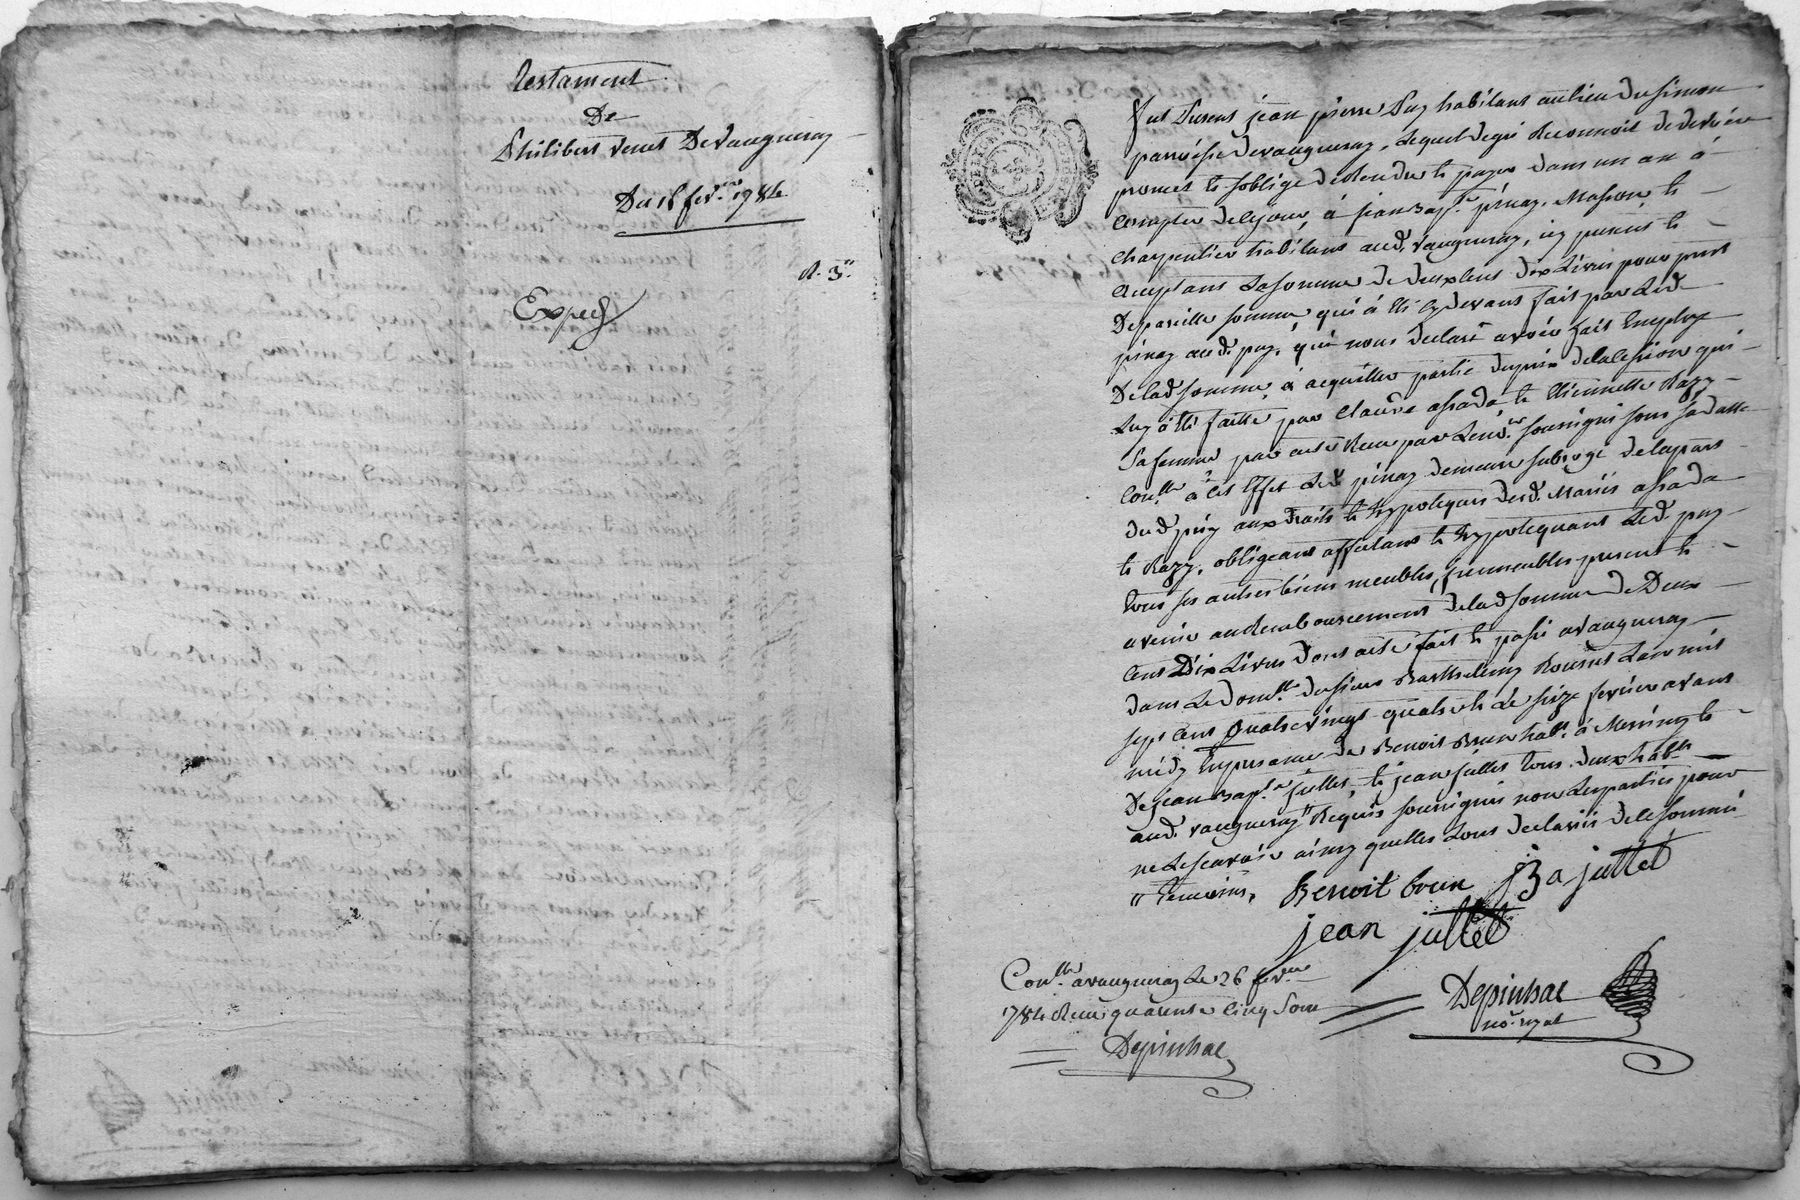 Testament
De
Philibert Venet De Vaugneray
Du 15 fev.er 1784
R. 3#
Exped
fut Present jean pierre Puy habitant au lieu du Simon
parroisse de vaugneray, Lequel de gré Reconnoit devoir
promet et s'oblige de Rendre et payer dans un an à
compter de ce jour, à jean Bap.te pinay, Masson et
charpentier habitant aud. vaugneray, icy present et
acceptant La somme de deux Cent dix Livres pour prest
De pareille somme, qui à été cy devant fait par Led.
pinay aud. puy, qui nous declare avoir fait Employ
De lad. somme, à acquitter partie du prix de la Cession qui
Luy à été faitte par Claude et Etiennette Razy
sa femme par acte Recu par Le no.re soussigné sous sa datte
Con.lle à Cet Effet Led. pinay demeure subrogé de la part
dud. puy aux droits et hypoteques desd. Mariés
et Razy, obligeant affectant et hypotequant Led. puy
tous ses autres biens meubles, jmmeubles present et
avenir au Remboursement de lad. somme de Deux
Cent Dix Livres dont acte fait et passé a vaugneray
dans Le dom.lle du sieur Barthelemy Lan mil
sept Cent Quatre vingt quatre et Le seize fevrier avant
midy En presence de Benoit Brun hab.t à Messimy et
De jean Bap.te jullet, et jean jullet tous deux hab.ts
aud. vaugneray Requis soussignés non Les parties pour
ne Le scavoir ainsy quelles L'ont declaré de Ce sommé
" Temoins, Benoit brun jB a jullet
jean jullet
Con.llé a vaugneray Le 26 fev.er
1784 Recu quarante Cinq sous
Depinhac
Depinhac
no.re royal